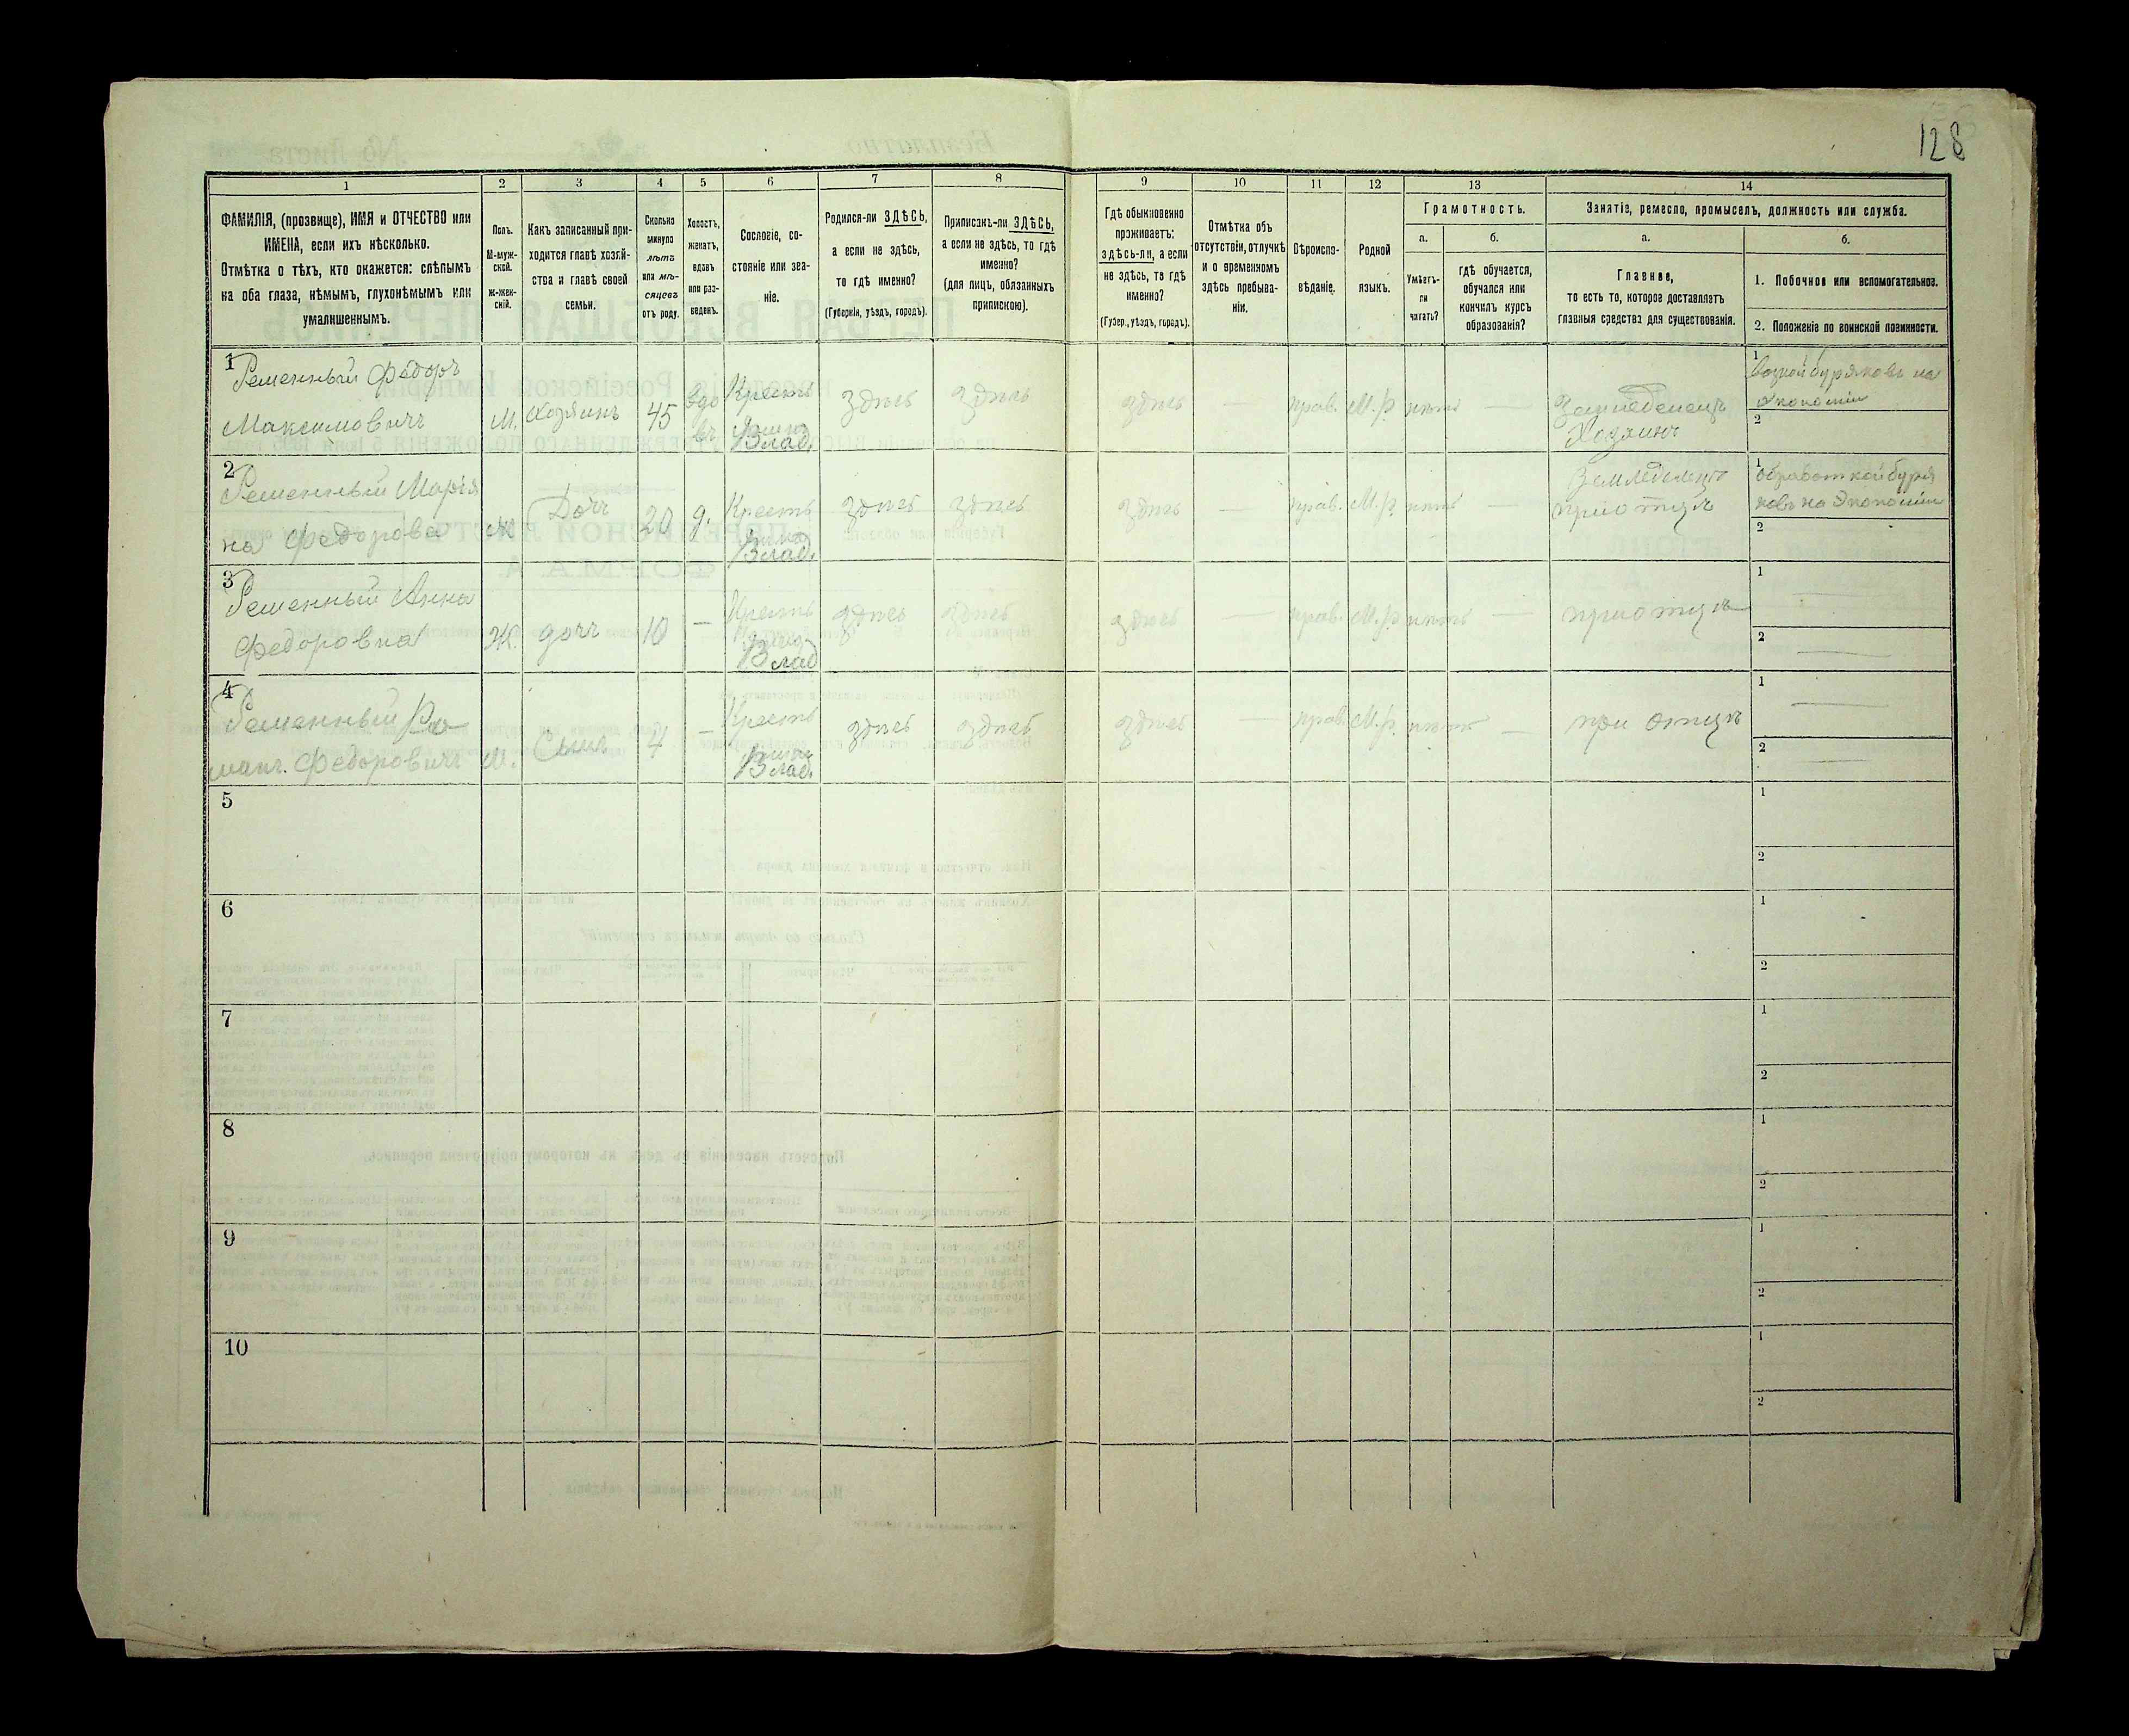 128
1
2
3
4
5
6
7
8
9
10
11
12
13
14
ФАМИЛІЯ, (прозвище), ИМЯ и ОТЧЕСТВО или
ИМЕНА, если ихъ нѣсколько.
Отмѣтка о тѣхъ, кто окажется: слѣпымъ
на оба глаза, нѣмымъ, глухонѣмымъ или
умалишеннымъ.
Полъ.
М-муж-
ской.
Ж-жен-
скій.
Какъ записанный при-
ходится главѣ хозяй-
ства и главѣ своей
семьи.
Сколько
минуло
лѣтъ
или мѣ-
сяцевъ
отъ роду.
Холостъ,
женатъ,
вдовъ
или раз-
веденъ.
Сословіе, со-
стояніе или зва-
ніе.
Родился-ли ЗДѢСЬ,
а если не здѣсь,
то гдѣ именно?
(Губернія, уѣздъ, городъ).
Приписанъ-ли ЗДѢСЬ,
а если не здѣсь, то гдѣ
именно?
(для лицъ, обязанныхъ
припискою).
Гдѣ обыкновенно
проживаетъ:
здѣсь-ли, а если
не здѣсь, то гдѣ
именно?
(Губер., уѣздъ, городъ).
Отмѣтка объ
отсутствіи, отлучкѣ
и о временномъ
здѣсь пребыва-
ніи.
Вѣроиспо-
вѣданіе.
Родной
языкъ.
Грамотность.
а.
Умѣетъ-
ли
читать?
б.
гдѣ обучается,
обучался или
кончилъ курсъ
образованія?
Занятіе, ремесло, промыселъ, должность или служба.
а.
Главное,
то есть то, которое доставляетъ
главныя средства для существованія.
б.
1. Побочное или вспомогательное.
2. Положеніе по воинской повинности.
1
Ременный Федоръ
Максимовичъ
М.
Хозяинъ
45
вдо
въ
Крестьянинъ
Влад.
здѣсь
здѣсь
здѣсь
—
прав.
М.р.
нѣтъ
—
Земледѣлецъ
Хозяинъ
1
возкой буряковъ на
экономіи
2
2
Ременный Марія
на Федорова
Ж
Дочь
20
д.
Крестьянка
Влад.
здѣсь
здѣсь
здѣсь
—
прав.
М.р.
нѣтъ
—
Земледѣлецъ
при отцѣ
1
обработкой буря
ковъ на Экономіи
2
3
Ременный Анна
Федоровна
Ж.
дочь
10
—
Крестьянка
Влад
здѣсь
здѣсь
здѣсь
—
прав.
М.р.
нѣтъ
—
при отцѣ
1
2
4
Ременный Ро
манъ Федоровичъ
М.
Сынъ
4
—
Крестьянинъ
Влад.
здѣсь
здѣсь
здѣсь
—
прав.
М.р.
нѣтъ
—
при отцѣ
1
2
5
1
2
6
1
2
7
1
2
8
1
2
9
1
2
10
1
2